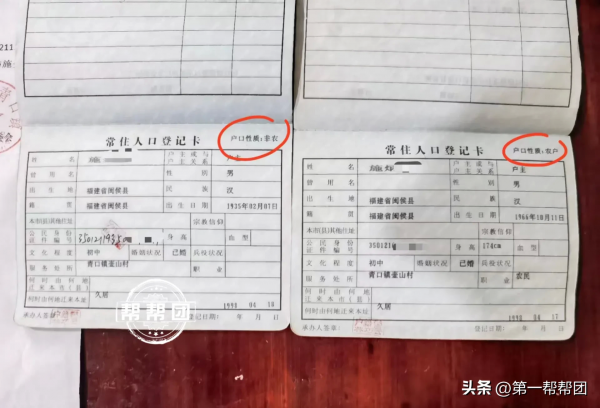 211
常住人口登记卡
户口性质:非农
姓名
户主或与户主关系
户主
曾用名
性别
男
出生地
福建省闽侯县
民族
汉
籍贯
福建省闽侯县
出生日期
1935年02月07日
本市(县)其他住址
宗教信仰
公民身份证件编号
身高
血型
文化程度
初中
婚姻状况
已婚
兵役状况
服务处所
青口镇壶山村
职业
何时由何地迁来本市(县)
何时由何地迁来本址
久居
承办人签章:
登记日期:
年 月 日
常住人口登记卡
户口性质:农户
姓名
户主或与户主关系
户主
曾用名
性别
男
出生地
福建省闽侯县
民族
汉
籍贯
福建省闽侯县
出生日期
1966年10月11日
本市(县)其他住址
宗教信仰
公民身份证件编号
350121
身高
174cm
血型
文化程度
初中
婚姻状况
已婚
兵役状况
服务处所
青口镇壶山村
职业
农民
何时由何地迁来本市(县)
何时由何地迁来本址
久居
承办人签章:
登记日期:
年 月 日
帮帮团
头条 @第一帮帮团